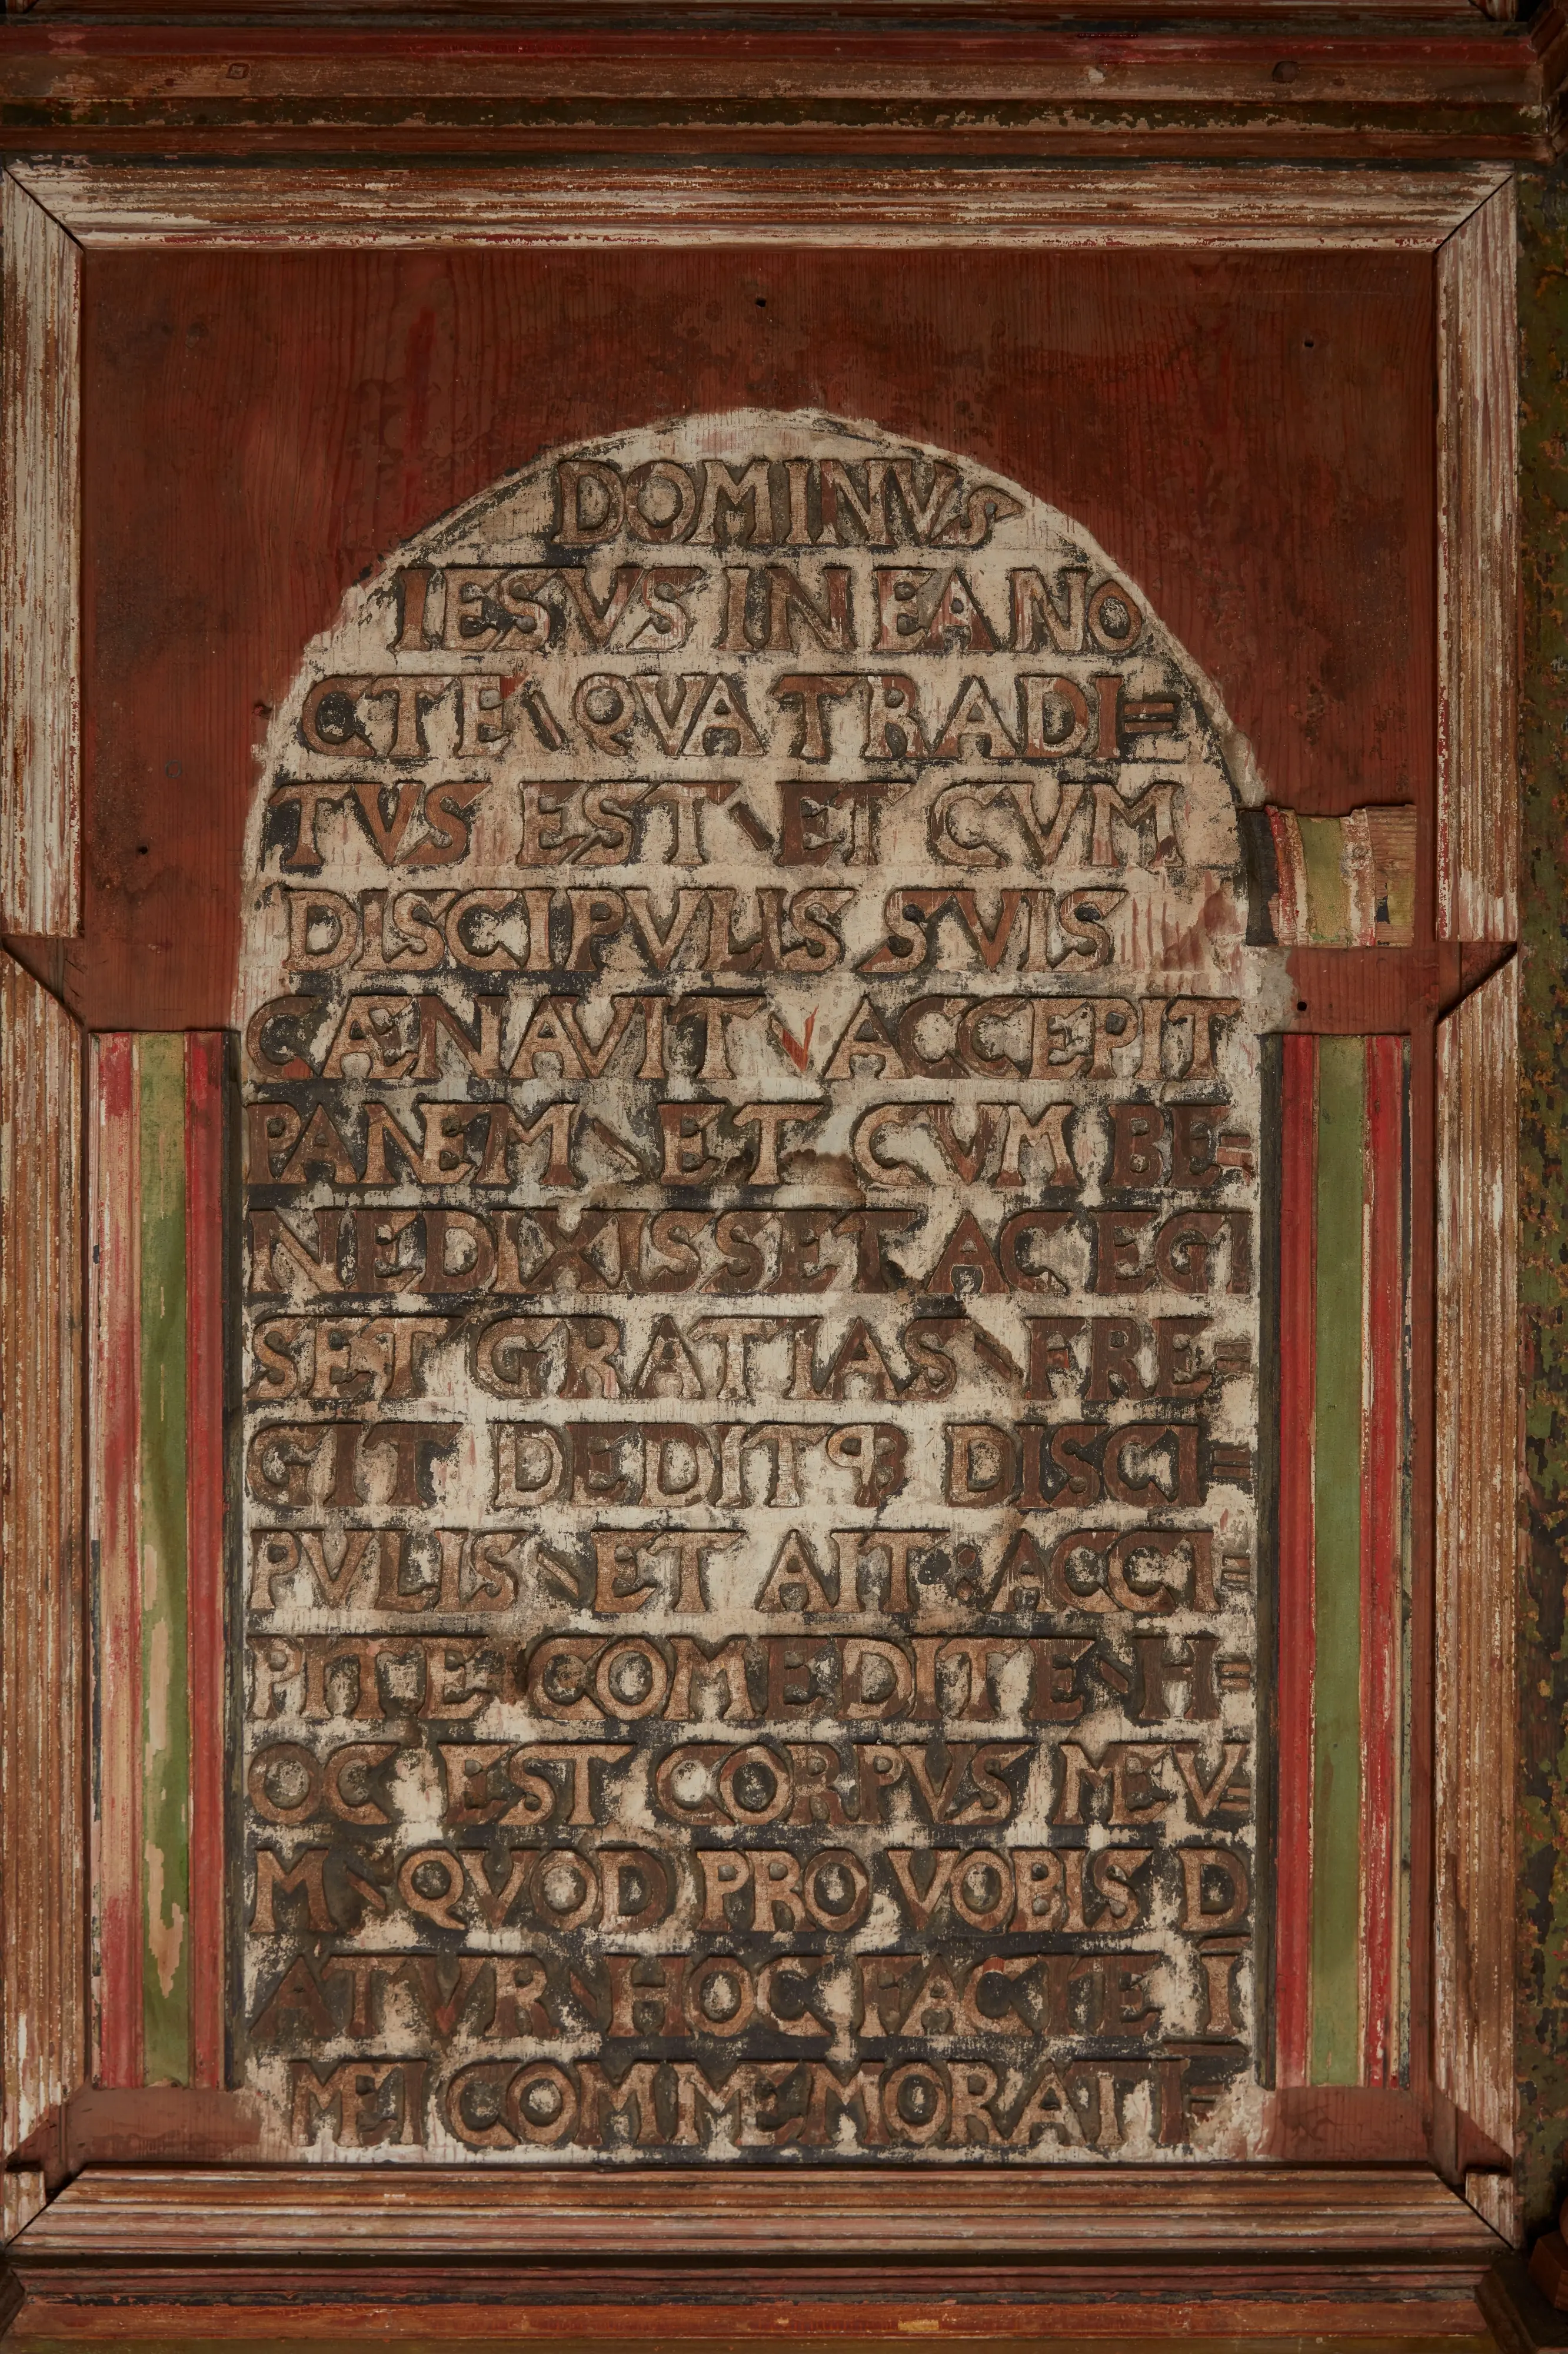 DOMINVS
IESVS IN EA NO
CTE \ QVA TRADI=
TVS EST \ ET CVM
DISCIPVLIS SVIS
CÆNAVIT \ ACCEPIT
PANEM \ ET CVM BE=
NEDIXISSET AC EGI
SET GRATIAS \ FRE=
GIT DEDITQ3 DISCI=
PVLIS \ ET AIT : ACCI=
PITE : COMEDITE \ H=
OC EST CORPVS MEV=
M \ QVOD PRO VOBIS D
ATVR \ HOC FACITE Ī
MEI COMMEMORATI=